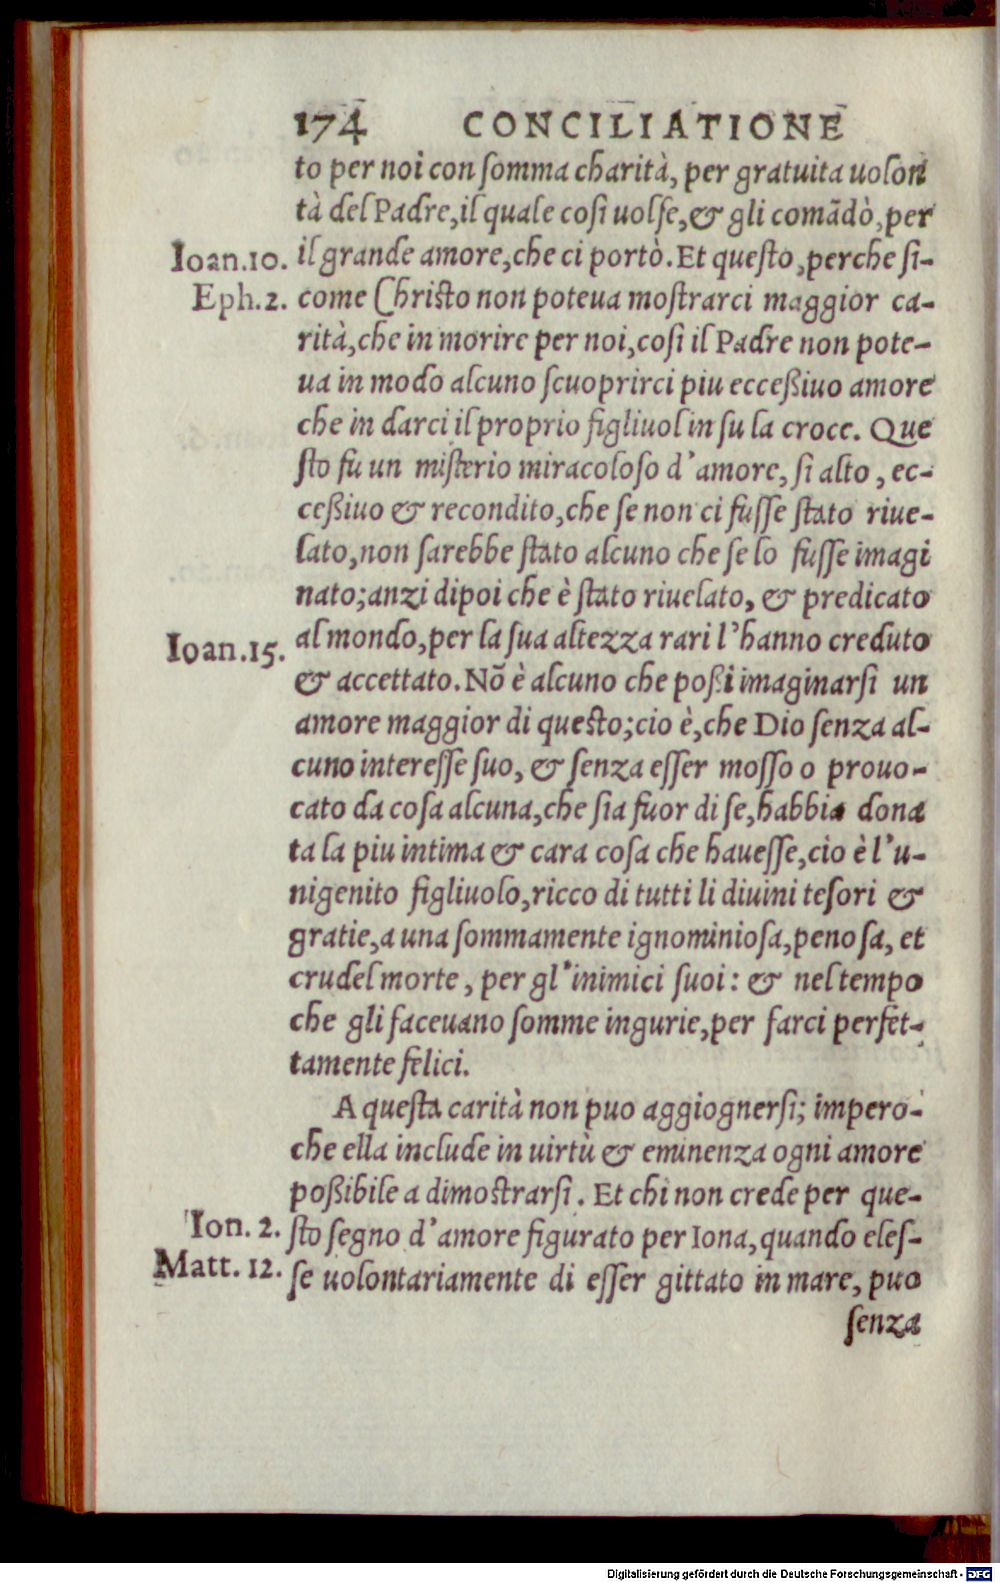 174 CONCILIATIONE
to per noi con ſomma charità, per gratuita uolon
tà del Padre, il quale coſi uolſe, & gli comãdò, per
Ioan.10. il grande amore, che ci portò. Et queſto, perche ſi-
Eph.2. come Chriſto non poteua moſtrarci maggior ca-
rità, che in morire per noi, coſi il Padre non pote-
ua in modo alcuno ſcuoprirci piu ecceßiuo amore
che in darci il proprio figliuol in ſu la croce. Que
ſto fu un miſterio miracoloſo d'amore, ſi alto, ec-
ceßiuo & recondito, che ſe non ci fuſſe ſtato riue-
lato, non ſarebbe ſtato alcuno che ſe lo fuſſe imagi
nato; anzi dipoi che è ſtato riuelato, & predicato
Ioan.15. al mondo, per la ſua altezza rari l'hanno creduto
& accettato. Nõ è alcuno che poßi imaginarſi un
amore maggior di queſto; cio è, che Dio ſenza al-
cuno intereſſe ſuo, & ſenza eſſer moſſo o prouo-
cato da coſa alcuna, che ſia fuor di ſe, habbia dona
ta la piu intima & cara coſa che haueſſe, cio è l'u-
nigenito figliuolo, ricco di tutti li diuini teſori &
gratie, a una ſommamente ignominioſa, penoſa, et
crudel morte, per gl'inimici ſuoi: & nel tempo
che gli faceuano ſomme ingurie, per farci perfet-
tamente felici.
A queſta carità non puo aggiognerſi; impero-
che ella include in uirtù & eminenza ogni amore
poßibile a dimoſtrarſi. Et chi non crede per que-
Ion. 2. ſto ſegno d'amore figurato per Iona, quando eleſ-
Matt. 12. ſe uolontariamente di eſſer gittato in mare, puo
ſenza
Digitalisierung gefördert durch die Deutsche Forschungsgemeinschaft - DFG